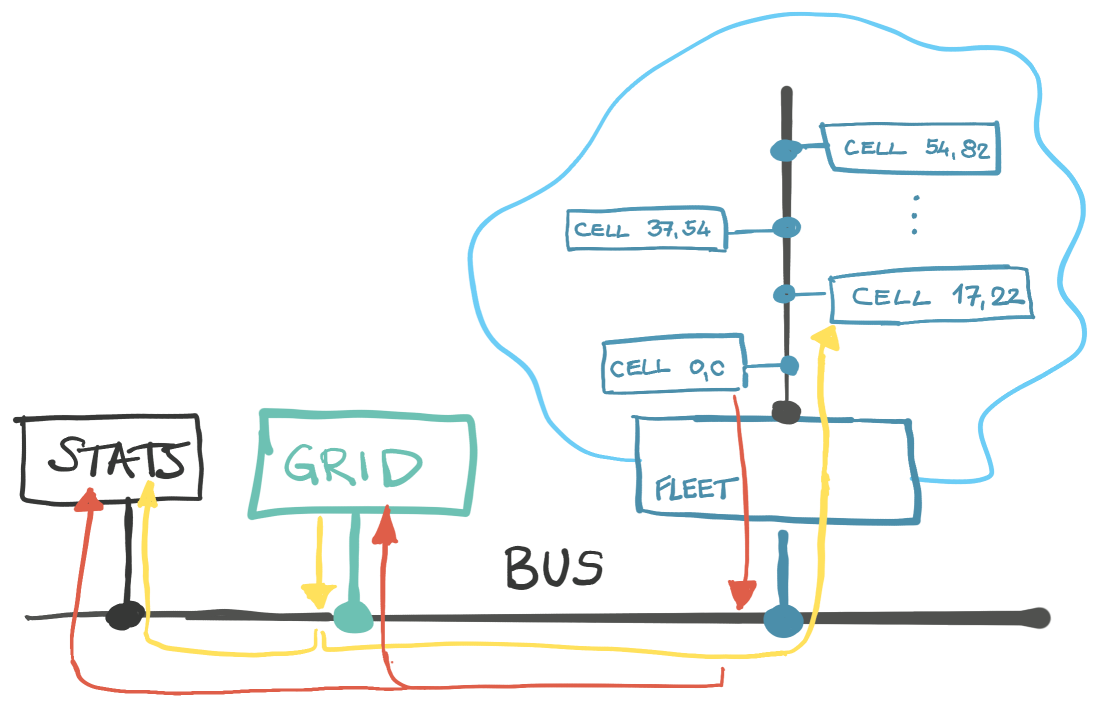 CELL 54,82
CELL 37,54
CELL 17,22
CELL 0,0
STATS
GRID
FLEET
BUS